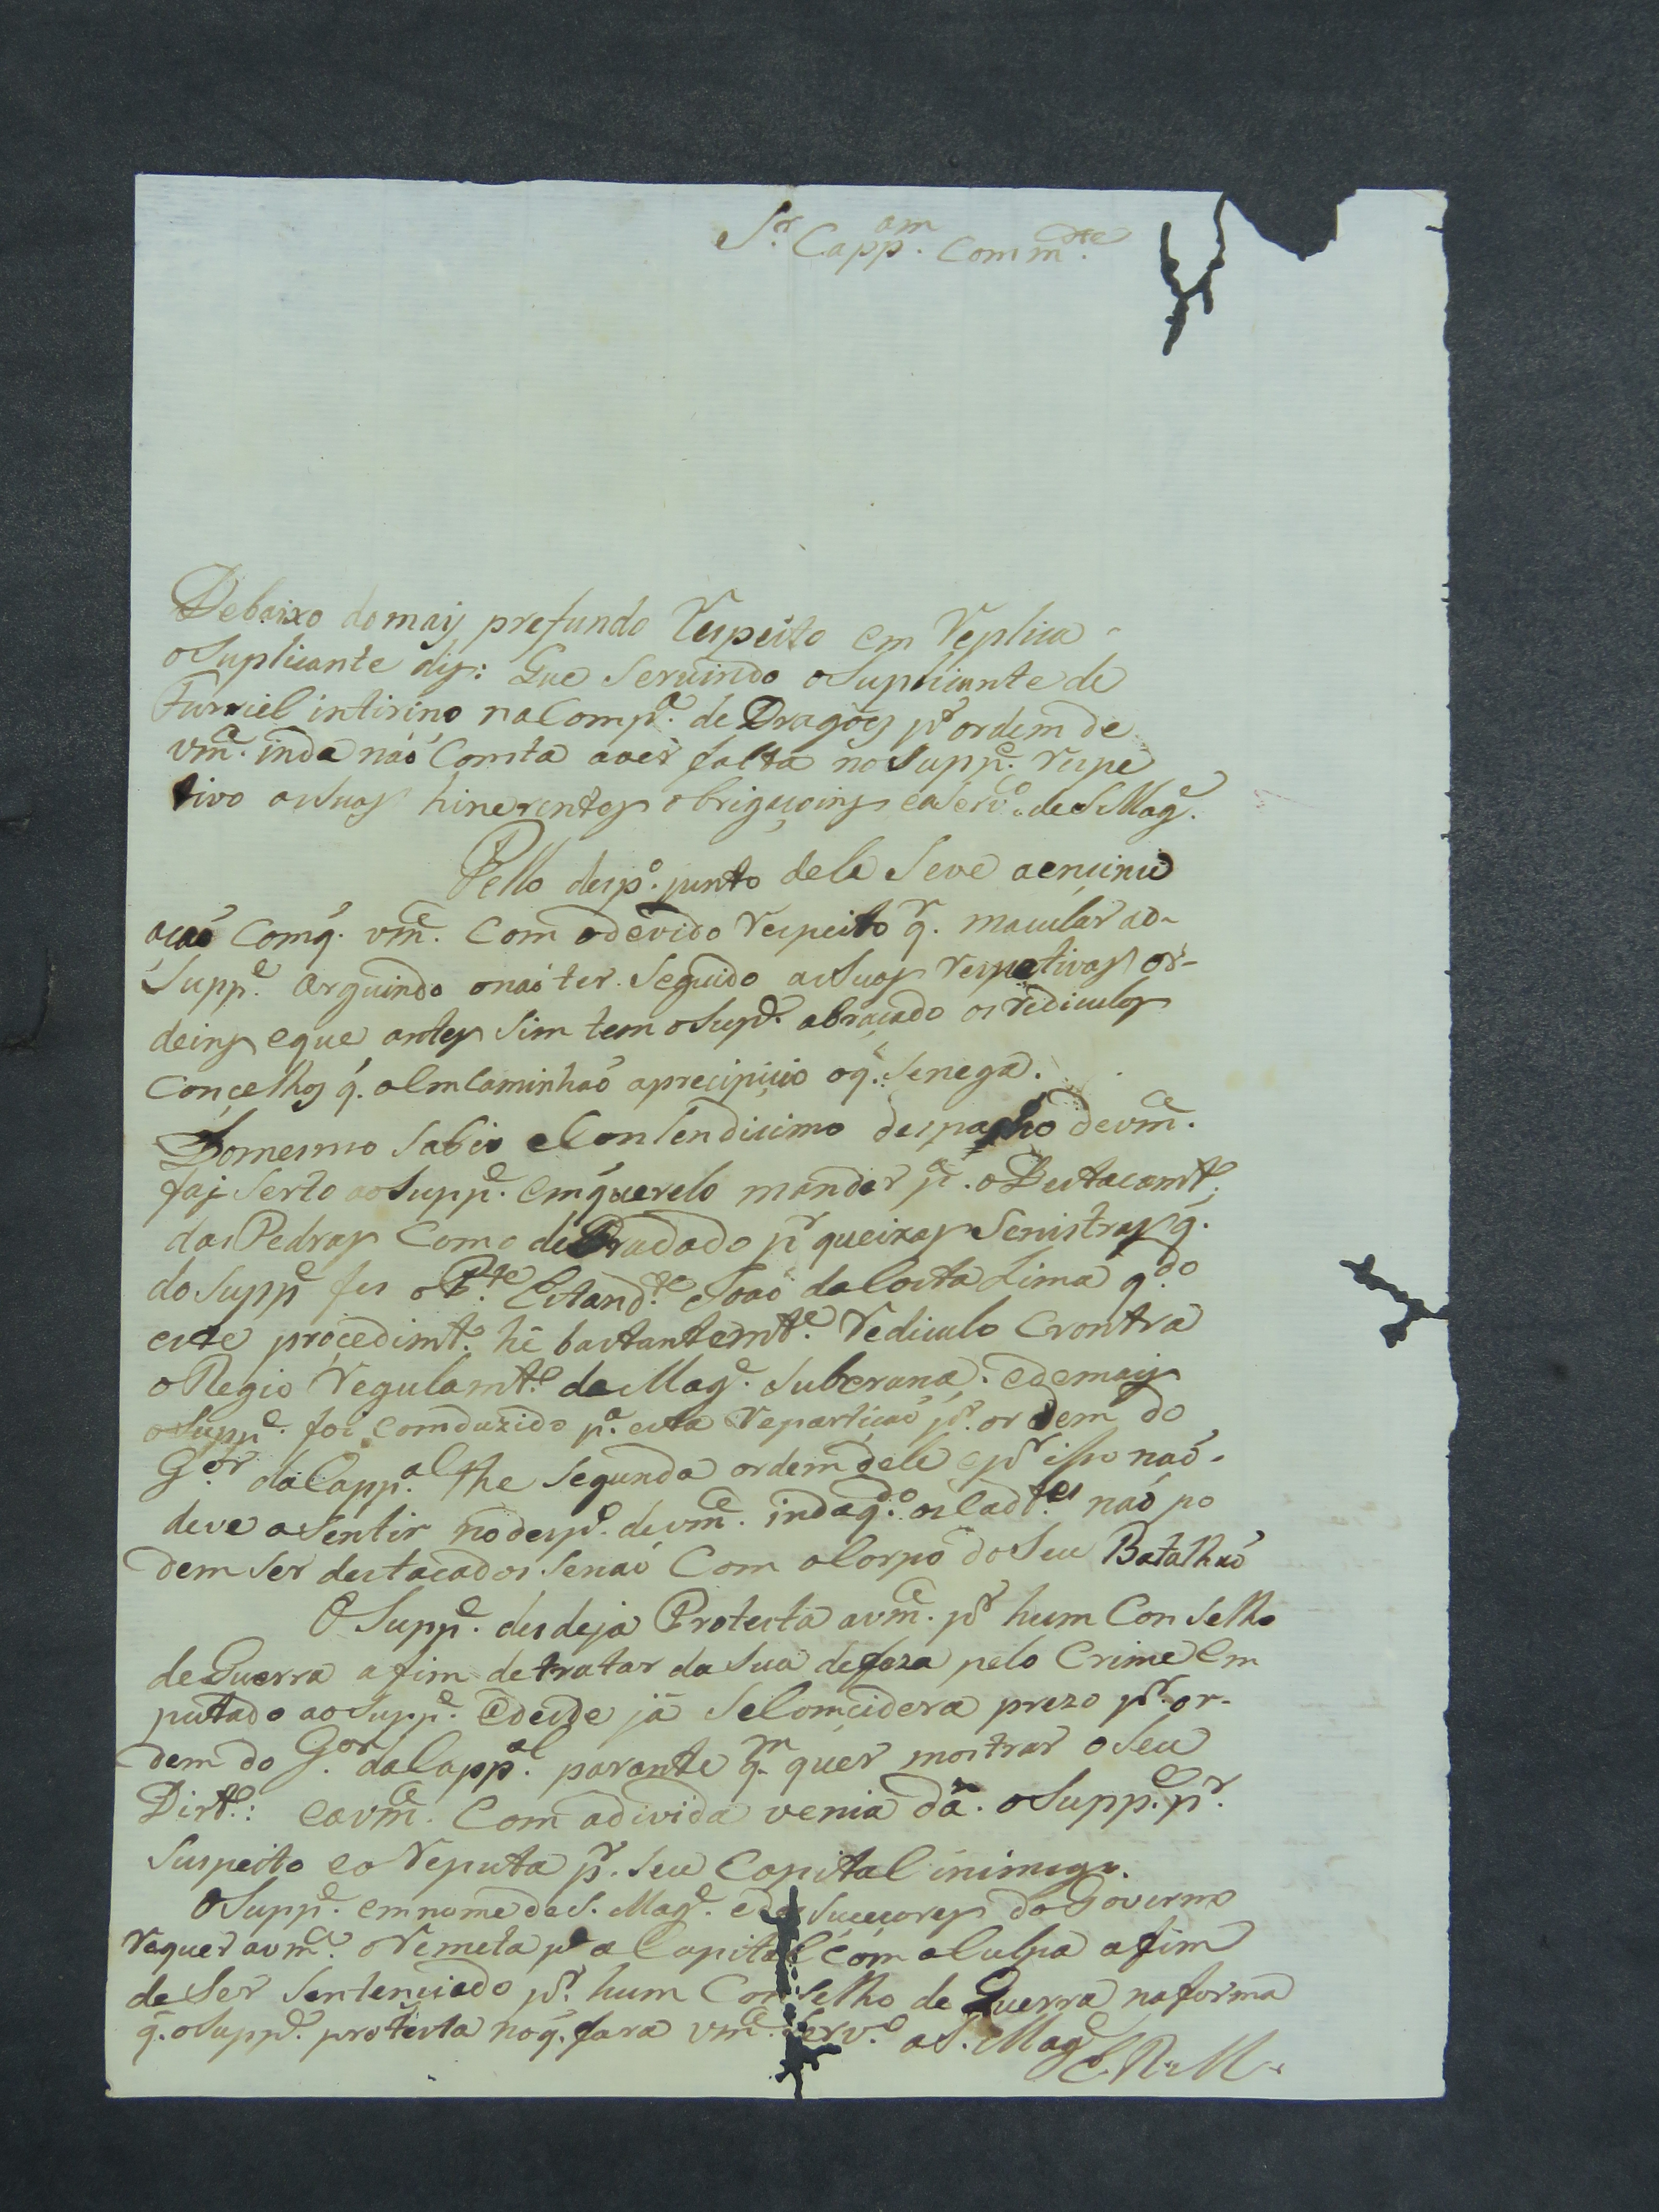 Sr. Cappam. Commdte.
Debaixo do mais profundo Respeito em Replica
o Suplicante dis: Que Servindo o Suplicante de
Furriel intirino na Compa. de Dragoẽs pr ordem de
vmce. inda naó Comsta aver falta no Suppe. respe
tivo as suas hinerentes obrigaçoins e a Servo. de S Mage.
Pello despo. junto dele Se ve a enjinui
açaó Com q. vmce. Com o devido Respeito qr. macular ao
Suppe. arguindo o naó ter Seguido as Suas respetivas or-
deins e que antes Sim tem o Supe. abraçado os ridiculos
Concelhos q. o Emcaminhaó a precipicio o q. Se nega.
Do mesmo Sabio e Contendicimo despacho de vmce.
fas Serto ao Suppe. em querelo mandar pa. o Destacamto.
das Pedras Como degradado pr queixas Senistras q.
do Suppe fes o Pte. Estande. Joaó da Costa Lima qdo.
este procedimto. hé bastantemte. Rediculo E contra
o Regio Regulamto. da Mage. Suberana: e demais
o Suppe. foi comduzido pa. esta Repartiçaó pr. ordem do
Gor. da Cappal. the Segunda ordem dele e pr isso naó
deve asentir no despo. de vmce. inda qdo. os Cadtes. naó po
dem Ser destacados Senaó Com o Corpo do Seu Batalhaó
O Suppe. desde ja Protesta a vmce. pr hum ConSelho
de Guerra a fim de tratar da Sua defeza pelo Crime Em
putado ao Suppe. E desde já Se Comcidera prezo pr. or-
dem do Gor. da Cappal. parante qm. quer mostrar o Seu
Dirto.: e a vmce. Com a divida venia dá o Suppe. pr.
Suspeito e o Reputa pr. Seu Capital inimigo.
O Suppe. em nome de S. Mage. e dos Sucçores do Governo
Requer a vmce. o Remeta pa a Capital com a Culpa a fim
de Ser Sentenciado pr. hum ConSelho de Guerra na forma
q. o Suppe. protesta no q. fara vmce. Servo. a S. Mage
E. R. M.